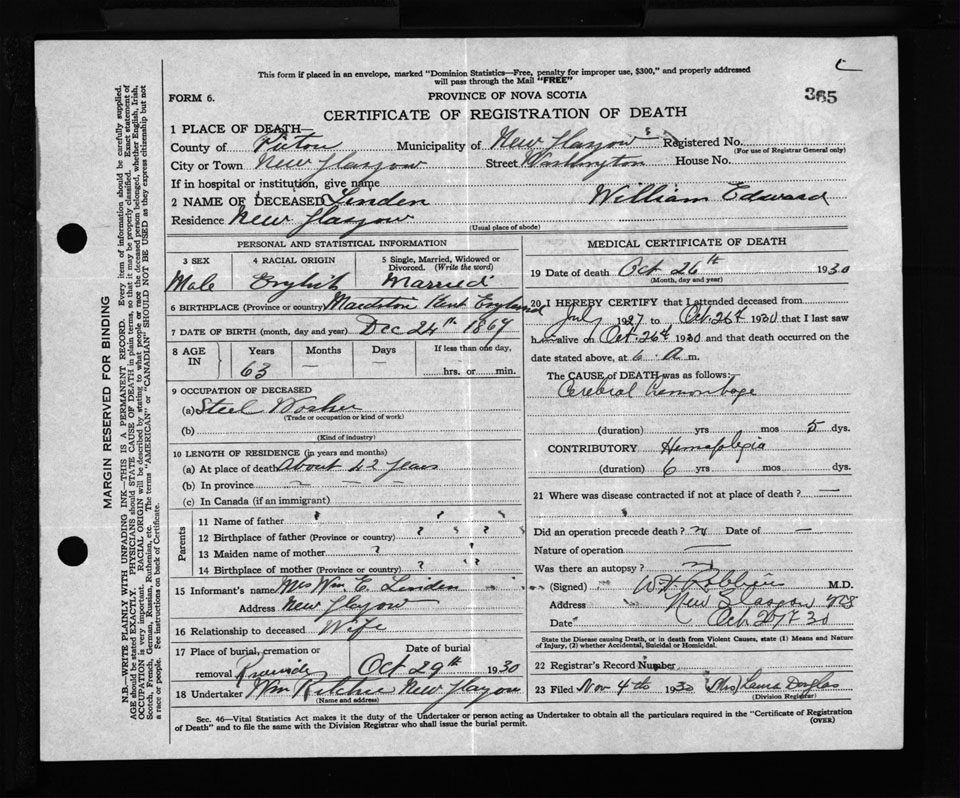 C
This form if placed in an envelope, marked "Dominion Statistics—Free, penalty for improper use, $300," and properly addressed
will pass through the Mail "FREE"
365
FORM 6.
PROVINCE OF NOVA SCOTIA
CERTIFICATE OF REGISTRATION OF DEATH
1 PLACE OF DEATH—
County of Pictou Municipality of New Glasgow Registered No.
(For use of Registrar General only)
City or Town New Glasgow Street Washington House No.
If in hospital or institution, give name
2 NAME OF DECEASED Linden William Edward
Residence New Glasgow
(Usual place of abode)
PERSONAL AND STATISTICAL INFORMATION
3 SEX 4 RACIAL ORIGIN 5 Single, Married, Widowed or Divorced. (Write the word)
Male English Married
6 BIRTHPLACE (Province or country) Maidston Kent England
7 DATE OF BIRTH (month, day and year) Dec 24th 1867
8 AGE IN Years Months Days If less than one day,
63 — — hrs. or min.
9 OCCUPATION OF DECEASED
(a) Steel Worker
(Trade or occupation or kind of work)
(b)
(Kind of industry)
10 LENGTH OF RESIDENCE (in years and months)
(a) At place of death About 42 years
(b) In province — — — —
(c) In Canada (if an immigrant)
Parents
11 Name of father ? ? ?
12 Birthplace of father (Province or country) ? ? ?
13 Maiden name of mother ?
14 Birthplace of mother (Province or country) ? ?
15 Informant's name Mrs Wm E. Linden
Address New Glasgow
16 Relationship to deceased Wife
17 Place of burial, cremation or removal Date of burial
Riverside Oct 29th 1930
18 Undertaker Wm Ritchie New Glasgow
(Name and address)
MEDICAL CERTIFICATE OF DEATH
19 Date of death Oct 26th 1930
(Month, day and year)
20 I HEREBY CERTIFY that I attended deceased from
July 1927 to Oct. 26th 1930 that I last saw
h alive on Oct. 26th 1930 and that death occurred on the
date stated above, at 6 a m.
The CAUSE OF DEATH was as follows:
Cerebral Hemorrhage
(duration) yrs mos 5 dys.
CONTRIBUTORY Hemiplegia
(duration) 6 yrs mos. dys.
21 Where was disease contracted if not at place of death? —
Did an operation precede death? Date of —
Nature of operation —
Was there an autopsy?
(Signed) M.D.
Address New Glasgow NS
Date Oct 27th 30
State the Disease causing Death, or in death from Violent Causes, state (1) Means and Nature
of Injury, (2) whether Accidental, Suicidal or Homicidal.
22 Registrar's Record Number
23 Filed Nov 4th 1930 (Mrs) Laura Douglas
(Division Registrar)
Sec. 46—Vital Statistics Act makes it the duty of the Undertaker or person acting as Undertaker to obtain all the particulars required in the "Certificate of Registration
of Death" and to file the same with the Division Registrar who shall issue the burial permit.
(OVER)
MARGIN RESERVED FOR BINDING
N.B.—WRITE PLAINLY WITH UNFADING INK—THIS IS A PERMANENT RECORD. Every item of information should be carefully supplied.
AGE should be stated EXACTLY. PHYSICIANS should STATE CAUSE OF DEATH in plain terms, so that it may be properly classified. Exact statement of
OCCUPATION is very important. RACIAL ORIGIN will be described by stating to what people or race the deceased person belonged, whether English, Irish,
Scotch, French, German, Russian, Ruthenian, etc. The terms "AMERICAN" or "CANADIAN" SHOULD NOT BE USED as they express citizenship but not
a race or people. See instructions on back of Certificate.